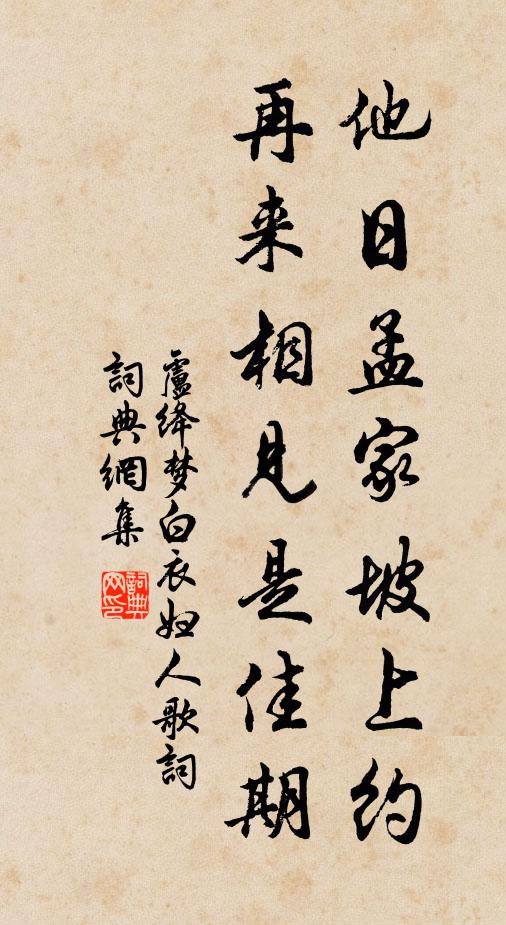 他日孟家坡上约
再来相見是佳期
盧绛梦白衣妇人歌詞
詞典網集
詞典
网印